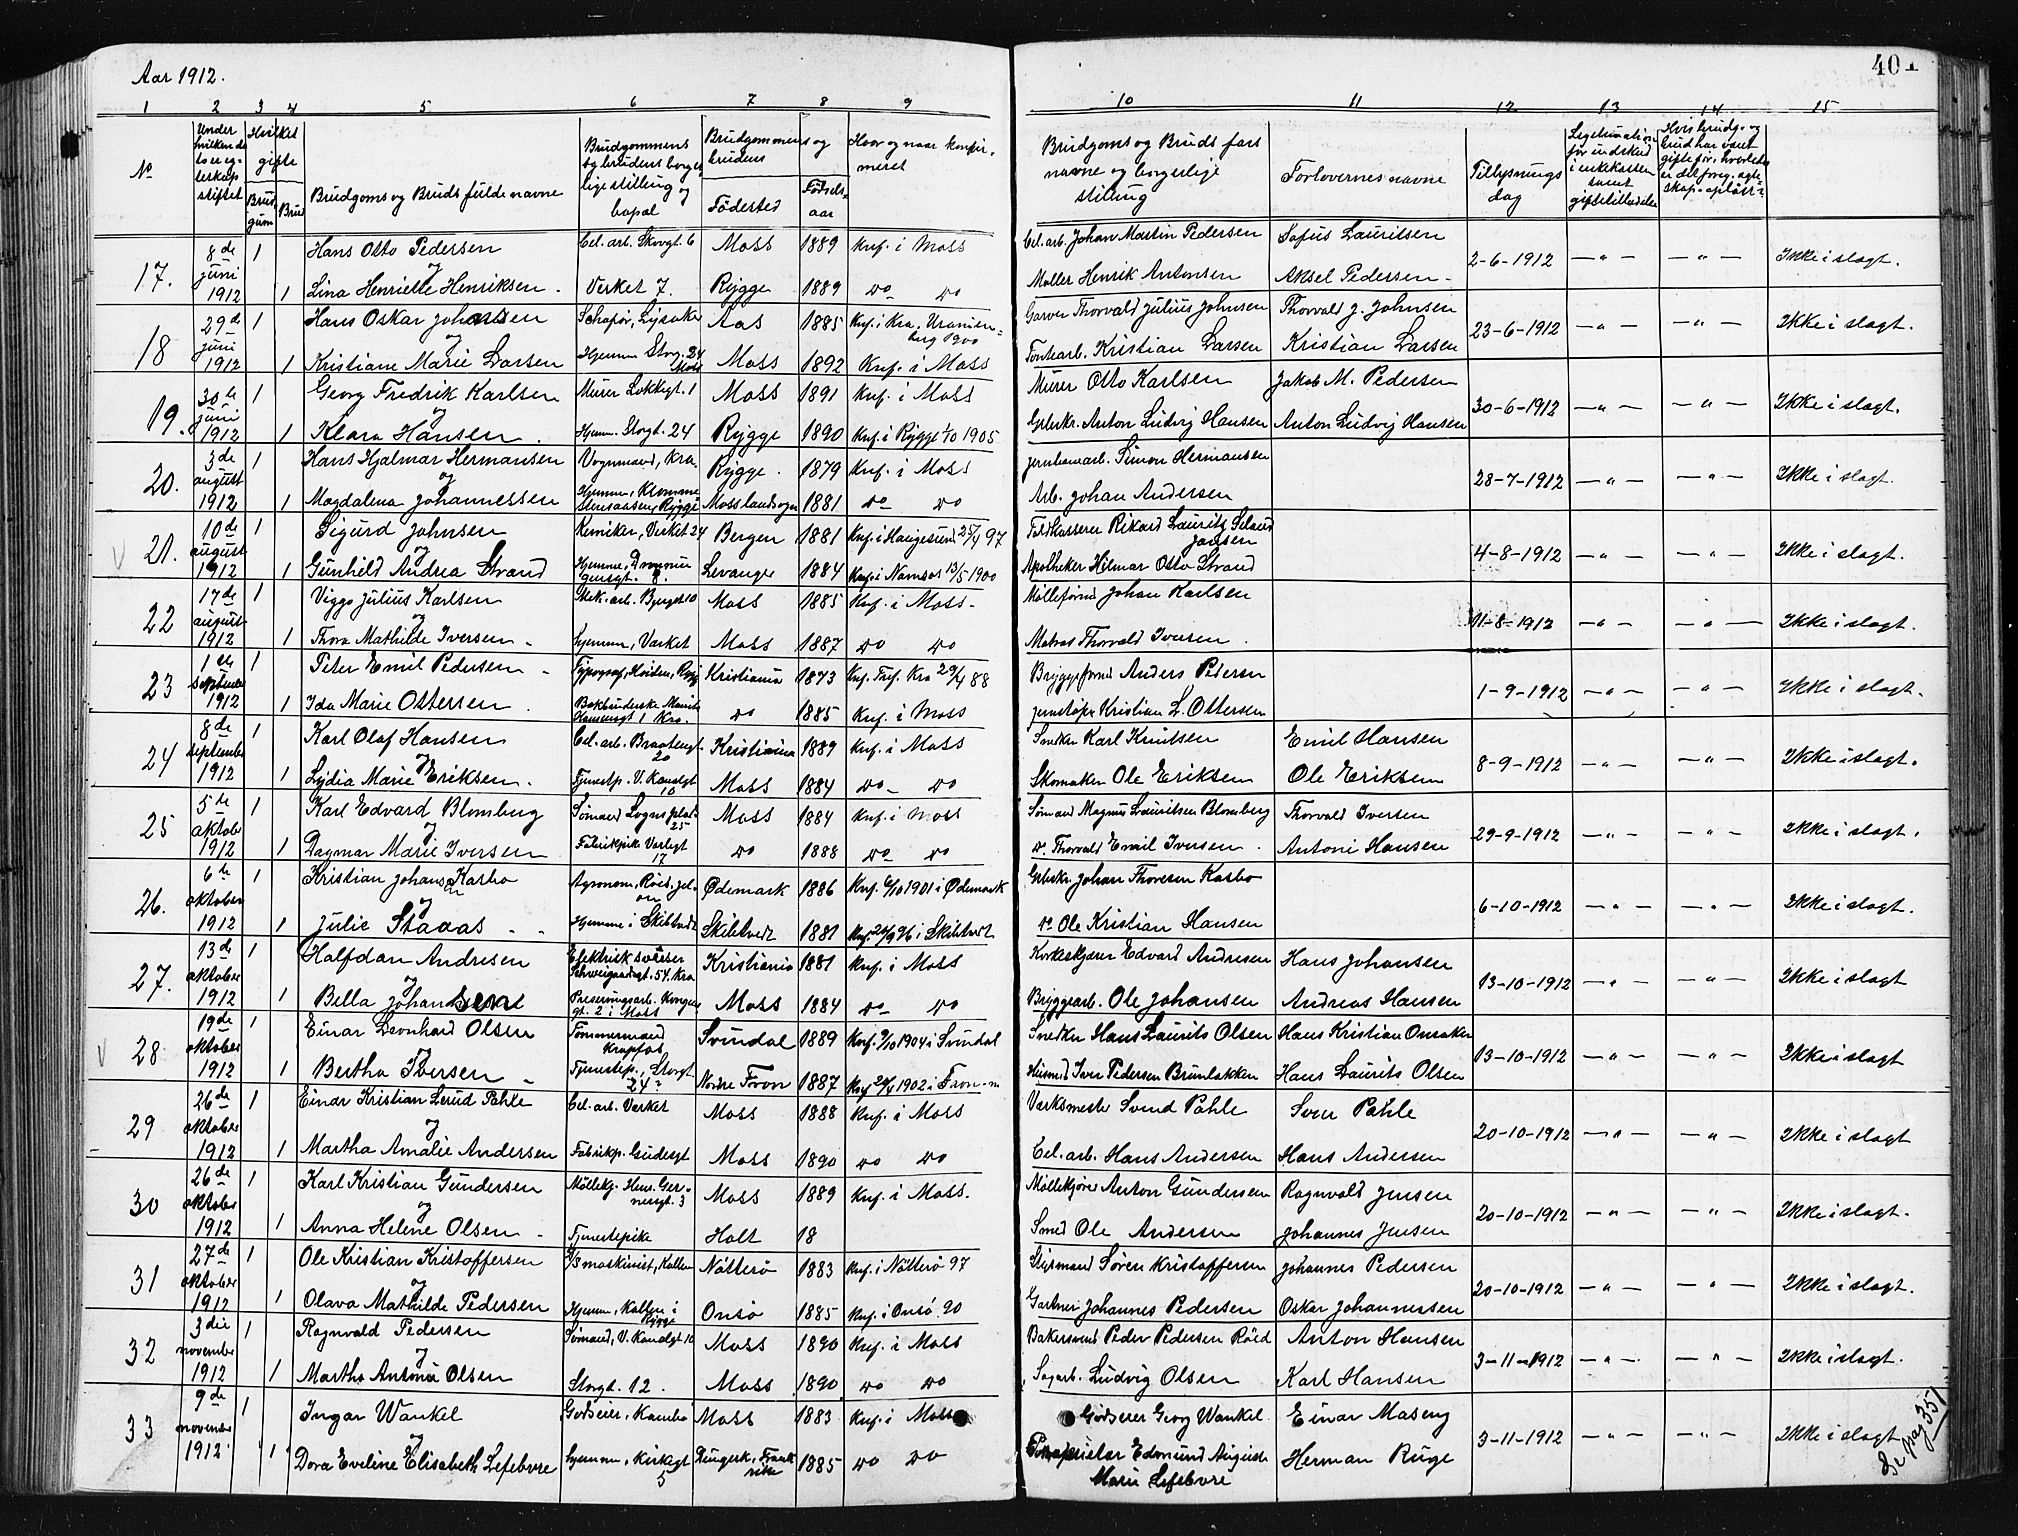 Aar 1912.
401
1 2 3 4 5 6 7 8 9 10 11 12 13 14 15
No
Under hvilken dato er egteskap stiftet
Hvilket gifte
Brudgum
Brud
Brudgoms og Bruds fulde navne
Brudgommens og brudens borgerlige stilling og bopæl
Brudgommens og brudens
Födested
Födselsaar
Hvor og naar konfirmeret
Brudgoms og Bruds fars navne og borgerlige stilling
Forlovernes navne
Tillysnings dag
17. 8de juni 1912 1 Hans Otto Pedersen Cel. arb. Storgt. 6 Moss 1889 Knf. i Moss Cel. arb. Johan Martin Pedersen Sofus Lauritsen 2-6-1912 — " — — " — Ikke i slagt.
og
1 Lina Henriette Henriksen. Verket 7. Rygge 1889 do do Møller Henrik Antonsen Aksel Pedersen
18 29de juni 1912 1 Hans Oskar Johansen Schaför, Lysaker Aas 1885 Knf. i Kra. Uranienburg 1900 Garver Thorvald Julius Johnsen Thorvald J. Johnsen 23-6-1912 — " — — " — Ikke i slagt.
og
1 Kristiane Marie Larsen Hjemme Storg. 24 Moss Moss 1892 Knf. i Moss Kristian Larsen Kristian Larsen
19. 30te juni 1912 1 Georg Fredrik Karlsen Murer Lokkegt. 1 Moss 1891 Knf. i Moss Murer Otto Karlsen Jakob M. Pedersen 30-6-1912 — " — — " — Ikke i slagt.
og
1 Klara Hansen. Hjemm. Storgt. 24 Rygge 1890 Knf. i Rygge 1/10 1905 Anton Ludvig Hansen Anton Ludvig Hansen
20. 3de august 1912 1 Hans Hjalmar Hermansen Vognmand, Kra. Rygge. 1879 Knf. i Moss Jernbanearb. Simon Hermansen 28-7-1912 — " — — " — Ikke i slagt.
og
1 Magdalena Johannessen Hjemme, Kromme Rygge Moss landsogn 1881 do do Arb. Johan Andersen
21. 10de august 1912 1 Sigurd Johnsen Kemiker, Verket 24 Bergen 1881 Knf. i Haugesund 25/4 97 Rikard Lauritz Johnsen 4-8-1912 — " — — " — Ikke i slagt.
og
1 Gunhild Andrea Strand Hjemme, Dronningensgt. 8. Levanger 1884 Knf. i Namsos 13/5 1900 Apotheker Hilmar Otto Strand
22 17de august 1912 1 Viggo Julius Karlsen Mek. arb. Bjerget 10 Moss 1885 Knf. i Moss. Mölleform Johan Karlsen 11-8-1912 — " — — " — Ikke i slagt.
og
1 Thora Mathilde Iversen Hjemm, Værket Moss 1887 do do Matros Thorvald Iversen.
23 1ste september 1912 1 Peter Emil Pedersen Typograf, Kristiania 1873 Knf. Tref. Kra 29/4 88 Bryggeform Anders Pedersen 1-9-1912 — " — — " — Ikke i slagt.
1 Ida Marie Ottersen. Bokbinderske Kra. do 1885 Knf. i Moss Jernstöper Kristian L. Ottersen
24 8de september 1912 1 Karl Olaf Hansen Cel. arb. Braatengt. 20 Kristiania 1889 Knf. i Moss Snedker Karl Knutsen Emil Hansen 8-9-1912 — " — — " — Ikke i slagt.
og
1 Lydia Marie Eriksen. Tjenestep. V. Kanalgt 10 Moss 1884 do do Skomaker Ole Eriksen Ole Eriksen
25 5te oktober 1912 1 Karl Edvard Blomberg Sömand Logns plads 25 Moss 1884 Knf. i Moss Sömand Magnus Lauritsen Blomberg Thorvald Iversen 29-9-1912 — " — — " — Ikke i slagt.
og
1 Dagmar Marie Iversen Fabrikpike Varlegt 17 do 1888 do do do Thorvald Emil Iversen. Antoni Hansen
26. 6te oktober 1912 1 Kristian Johansen Kasbo Agronom, Röis. Jelöen Ödemark 1886 Knf. 6/10 1901 i Ödemark Gbrkr. Johan Thoresen Kasbo 6-10-1912 — " — — " — Ikke i slagt.
og
1 Julie Staaas Hjemme i Skibtvedt Skibtvedt 1881 Knf. 20/9 96 i Skibtvedt do Ole Kristian Hansen
27. 13de oktober 1912 1 Halfdan Andresen Elektrisk sveiser Schweigaardsgt. 54. Kra Kristiania 1881 Knf. i Moss Korkeskjærer Edvard Andresen Hans Johansen 13-10-1912 — " — — " — Ikke i slagt
og
1 Bella Johansen Preserveringsarb. Kongensgt. 2 i Moss Moss 1884 do do Bryggearb. Ole Johansen Andreas Hansen
28. 19de oktober 1912 1 Einar Leonhard Olsen Tömmermand Krapfos Svindal 1889 Knf. 9/10 1904 i Svindal Snedker Hans Laurits Olsen Hans Kristian Onsaker 13-10-1912 — " — — " — Ikke i slagt
og
1 Bertha Iversen Tjenestep., Storgt 24 Nordre Fron 1887 Knf. 1902 i Fron Husmd Iver Pedersen Brunlakken Hans Laurits Olsen
29 26de oktober 1912 1 Einar Kristian Lerud Pahle Cel. arb. Verket Moss 1888 Knf. i Moss Verksmester Svend Pahle Sven Pahle 20-10-1912 — " — — " — Ikke i slagt
og
1 Martha Amalie Andersen Fabrikp. Gudesgt Moss 1890 do do Cel. arb. Hans Andersen Hans Andersen
30 26de oktober 1912 1 Karl Kristian Gundersen Möllekj. Hens. Gernersgt. 3 Moss 1889 Knf. i Moss. Möllekjörer Anton Gundersen Ragnvald Jensen 20-10-1912 — " — — " — Ikke i slagt.
og
1 Anna Helene Olsen Tjenestepike Holt 18 Smed Ole Andersen Johannes Jensen
31 27de oktober 1912 1 Ole Kristian Kristoffersen D/S maskinist, Kallum Nötterö 1883 Knf. i Nötterö 97 Styrmand Sören Kristoffersen Johannes Pedersen 20-10-1912 — " — — " — Ikke i slagt.
og
1 Olava Mathilde Pedersen Hjemm, Kallum i Rygge Onsö 1885 Knf. i Onsö. 90 Gartner Johannes Pedersen Oskar Johannessen
32 3die november 1912 1 Ragnvald Pedersen Sömand, V. Kanalgt 10 Moss 1890 Knf. i Moss Bakersvend Peder Pedersen Röed Anton Hansen 3-11-1912 — " — — " — Ikke i slagt.
og
1 Martha Antonie Olsen Storgt. 12. Moss 1890 do do Sagarb. Ludvig Olsen Karl Hansen
33 9de november 1912 1 Ingar Wankel Godseier, Kambo Moss 1883 Knf. i Moss Godseier Georg Wankel Einar Maseng 3-11-1912 — " — — " — Ikke i slagt
og
1 Dora Eveline Elisabeth Lefebvre Hjemm, Kirkegt 5 Frankrike 1885 do do Edmund Auguste Marie Lefebvre Herman Ruge
Se pag 351